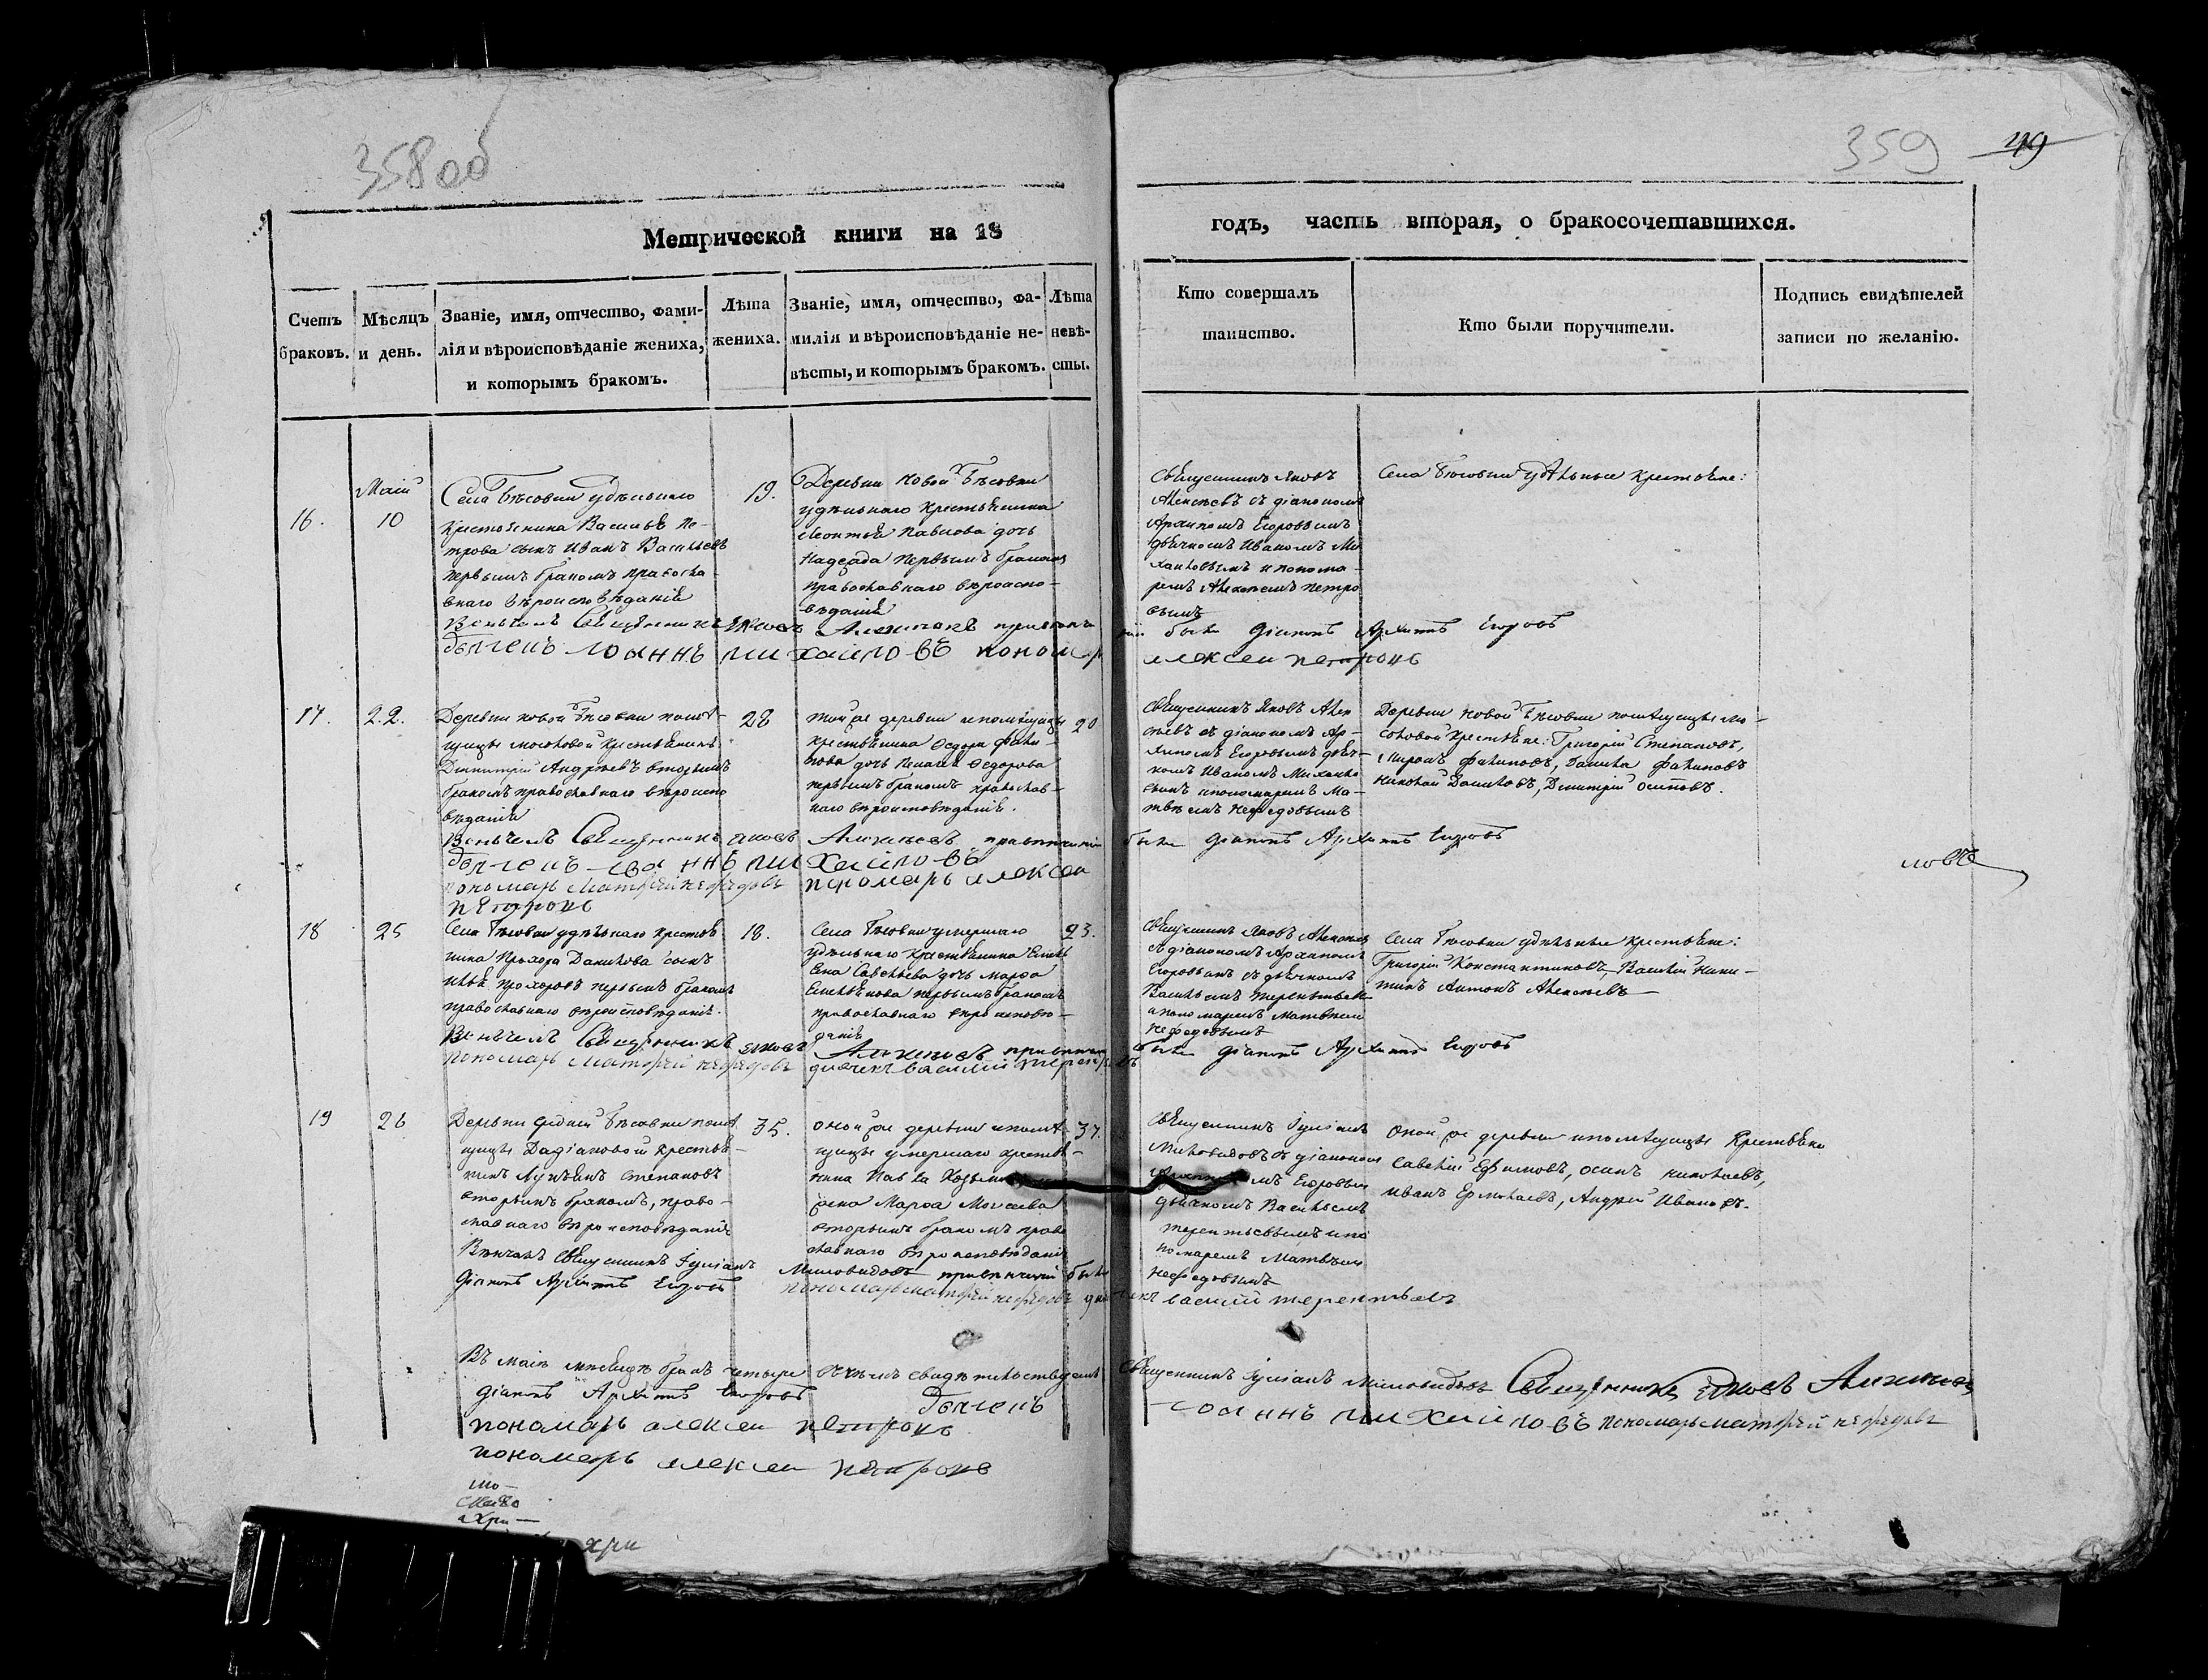 358 об
359
49
Метрической книги на 18
годъ, часть вторая, о бракосочетавшихся.
Счетъ браковъ.
Мѣсяцъ и день.
Званіе, имя, отчество, фами-
лія и вѣроисповѣданіе жениха,
и которымъ бракомъ.
Лѣта
жениха.
Званіе, имя, отчество, фа-
милія и вѣроисповѣданіе не-
вѣсты, и которымъ бракомъ.
Лѣта
невѣ-
сты.
Кто совершалъ
таинство.
Кто были поручители.
Подпись свидѣтелей
записи по желанію.
16.
Маій
10
Села Бѣсовки удѣльнаго
крестьянина Василья Пе-
трова сынъ Иванъ Васильевъ
первымъ бракомъ правосла-
внаго вѣроисповѣданія
19.
Деревни Новой Бѣсовки
удѣльнаго крестьянина
Леонтья Павлова дочь
Надежда первымъ бракомъ
православнаго вѣроиспо-
вѣданія
Священникъ Яковъ
Алексѣевъ съ діакономъ
Архипомъ Егоровымъ
дьячкомъ Иваномъ Ми
хайловымъ и понома-
ремъ Алексѣемъ Петро
вымъ
Села Бѣсовки удѣльные крестьяне:
Венчалъ Священникъ Яковъ Алексѣевъ при венча
ніи были діаконъ Архипъ Егоровъ
дьячекъ Іоаннъ Михайловъ пономарь
алексеи петровъ
17.
22.
Деревни Новой Бѣсовки помѣ-
щицы Мосоловой крестьянинъ
Димитрій Андреевъ вторымъ
бракомъ православнаго вѣроиспо
вѣданія
28
той же деревни и помѣщицы
крестьянина Ѳедора Фили-
пова дочь Пелагея Ѳедорова
первымъ бракомъ православ-
наго вѣроисповѣданія.
20
Священникъ Яковъ Алек
сѣевъ съ діакономъ Ар-
хипомъ Егоровымъ дьяч-
комъ Иваномъ Михайло
вымъ и пономаремъ Ма-
твѣемъ Нефедовымъ
Деревни Новой Бѣсовки помѣщицы Мо-
соловой крестьяне: Григорій Степановъ,
Филиповъ, Данила Филиповъ
Николай Даниловъ, Димитрій Осиповъ.
Венчалъ Священникъ Яковъ Алексѣевъ при венчаніи
были діаконъ Архипъ Егоровъ
дьячекъ Іоаннъ Михайловъ
пономарь Матфей Нефедовъ пономарь алексеи
петровъ
ловъ
18
25
Села Бѣсовки удѣльнаго крестья
нина Прохора Данилова сынъ
Илья Прохоровъ первымъ бракомъ
православнаго вѣроисповѣданія.
18.
Села Бѣсовки умершаго
удѣльнаго крестьянина Емель
яна Савельева дочь Марѳа
Емельянова первымъ бракомъ
православнаго вѣроисповѣ-
данія
23.
Священникъ Яковъ Алексѣевъ
съ діакономъ Архипомъ
Егоровымъ съ дьячкомъ
Васильемъ Терентьевы
и пономаремъ Матвѣем
Нефедовымъ
Села Бѣсовки удѣльные крестьяне:
Григорій Константиновъ, Василій Ники-
тинъ Антонъ Алексѣевъ
Венчалъ Священникъ Яковъ Алексѣевъ при венчани
были діаконъ Архипъ Егоровъ
пономарь Матфей Нефедовъ дьячекъ василій терентьевъ
19
26
Деревни Бѣсовки помѣ
щицы Дадіановой крестья-
нинъ Лукьянъ Степановъ
вторымъ бракомъ, право-
славнаго вѣроисповѣданія
35.
оной же деревни и помѣ-
щицы умершаго крестья-
нина Павла Козьмина
жена Марѳа Моисеева
вторымъ бракомъ право
славнаго вѣроисповѣданія
37.
Священникъ Іуліанъ
Миловидовъ съ діакономъ
Архипомъ Егоровым
дьячкомъ Васильемъ
Терентьевымъ и по
номаремъ Матвѣем
Нефедовымъ
Оной же деревни и помѣщицы крестьяне
Савелій Ефимовъ, Осипъ Николаевъ,
Иванъ Ермолаевъ, Андрей Ивановъ.
Вѣнчалъ Священникъ Іуліанъ Миловидовъ при венчаніи были
діаконъ Архипъ Егоровъ пономарь матфей нефедовъ дьячекъ василій терентьевъ
Въ маіѣ мѣсяцѣ бракъ четыре свидѣтельствуемъ Священникъ Іуліанъ Миловидовъ Священникъ Яковъ Алексѣевъ
діаконъ Архипъ Егоровъ дьячекъ Іоаннъ Михайловъ пономарь матфей нефедовъ
пономарь алексеи петровъ
пономарь алексеи петровъ
хри